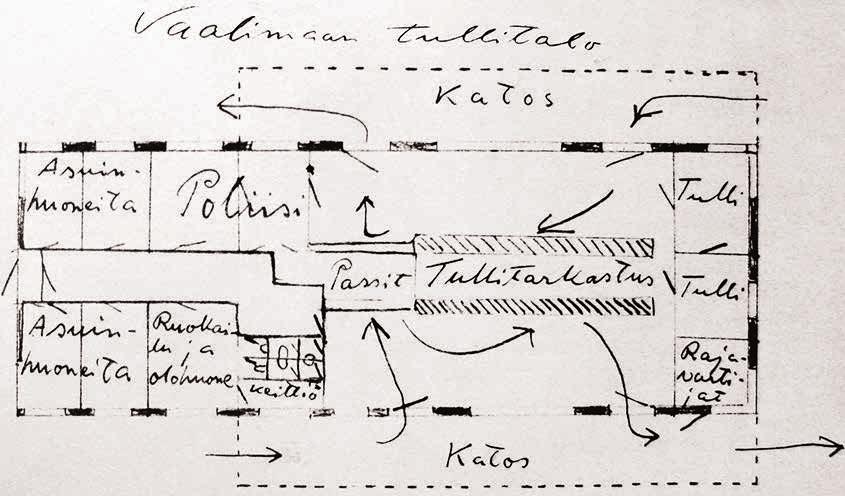 Vaalimaan tullitalo
Katos
Asuin-
huoneita
Poliisi
Tulli
Passit
Tullitarkastus
Tulli
Asuin-
huoneita
Ruokai-
lu ja
olohuone
keittiö
Raja-
varti-
jat
Katos